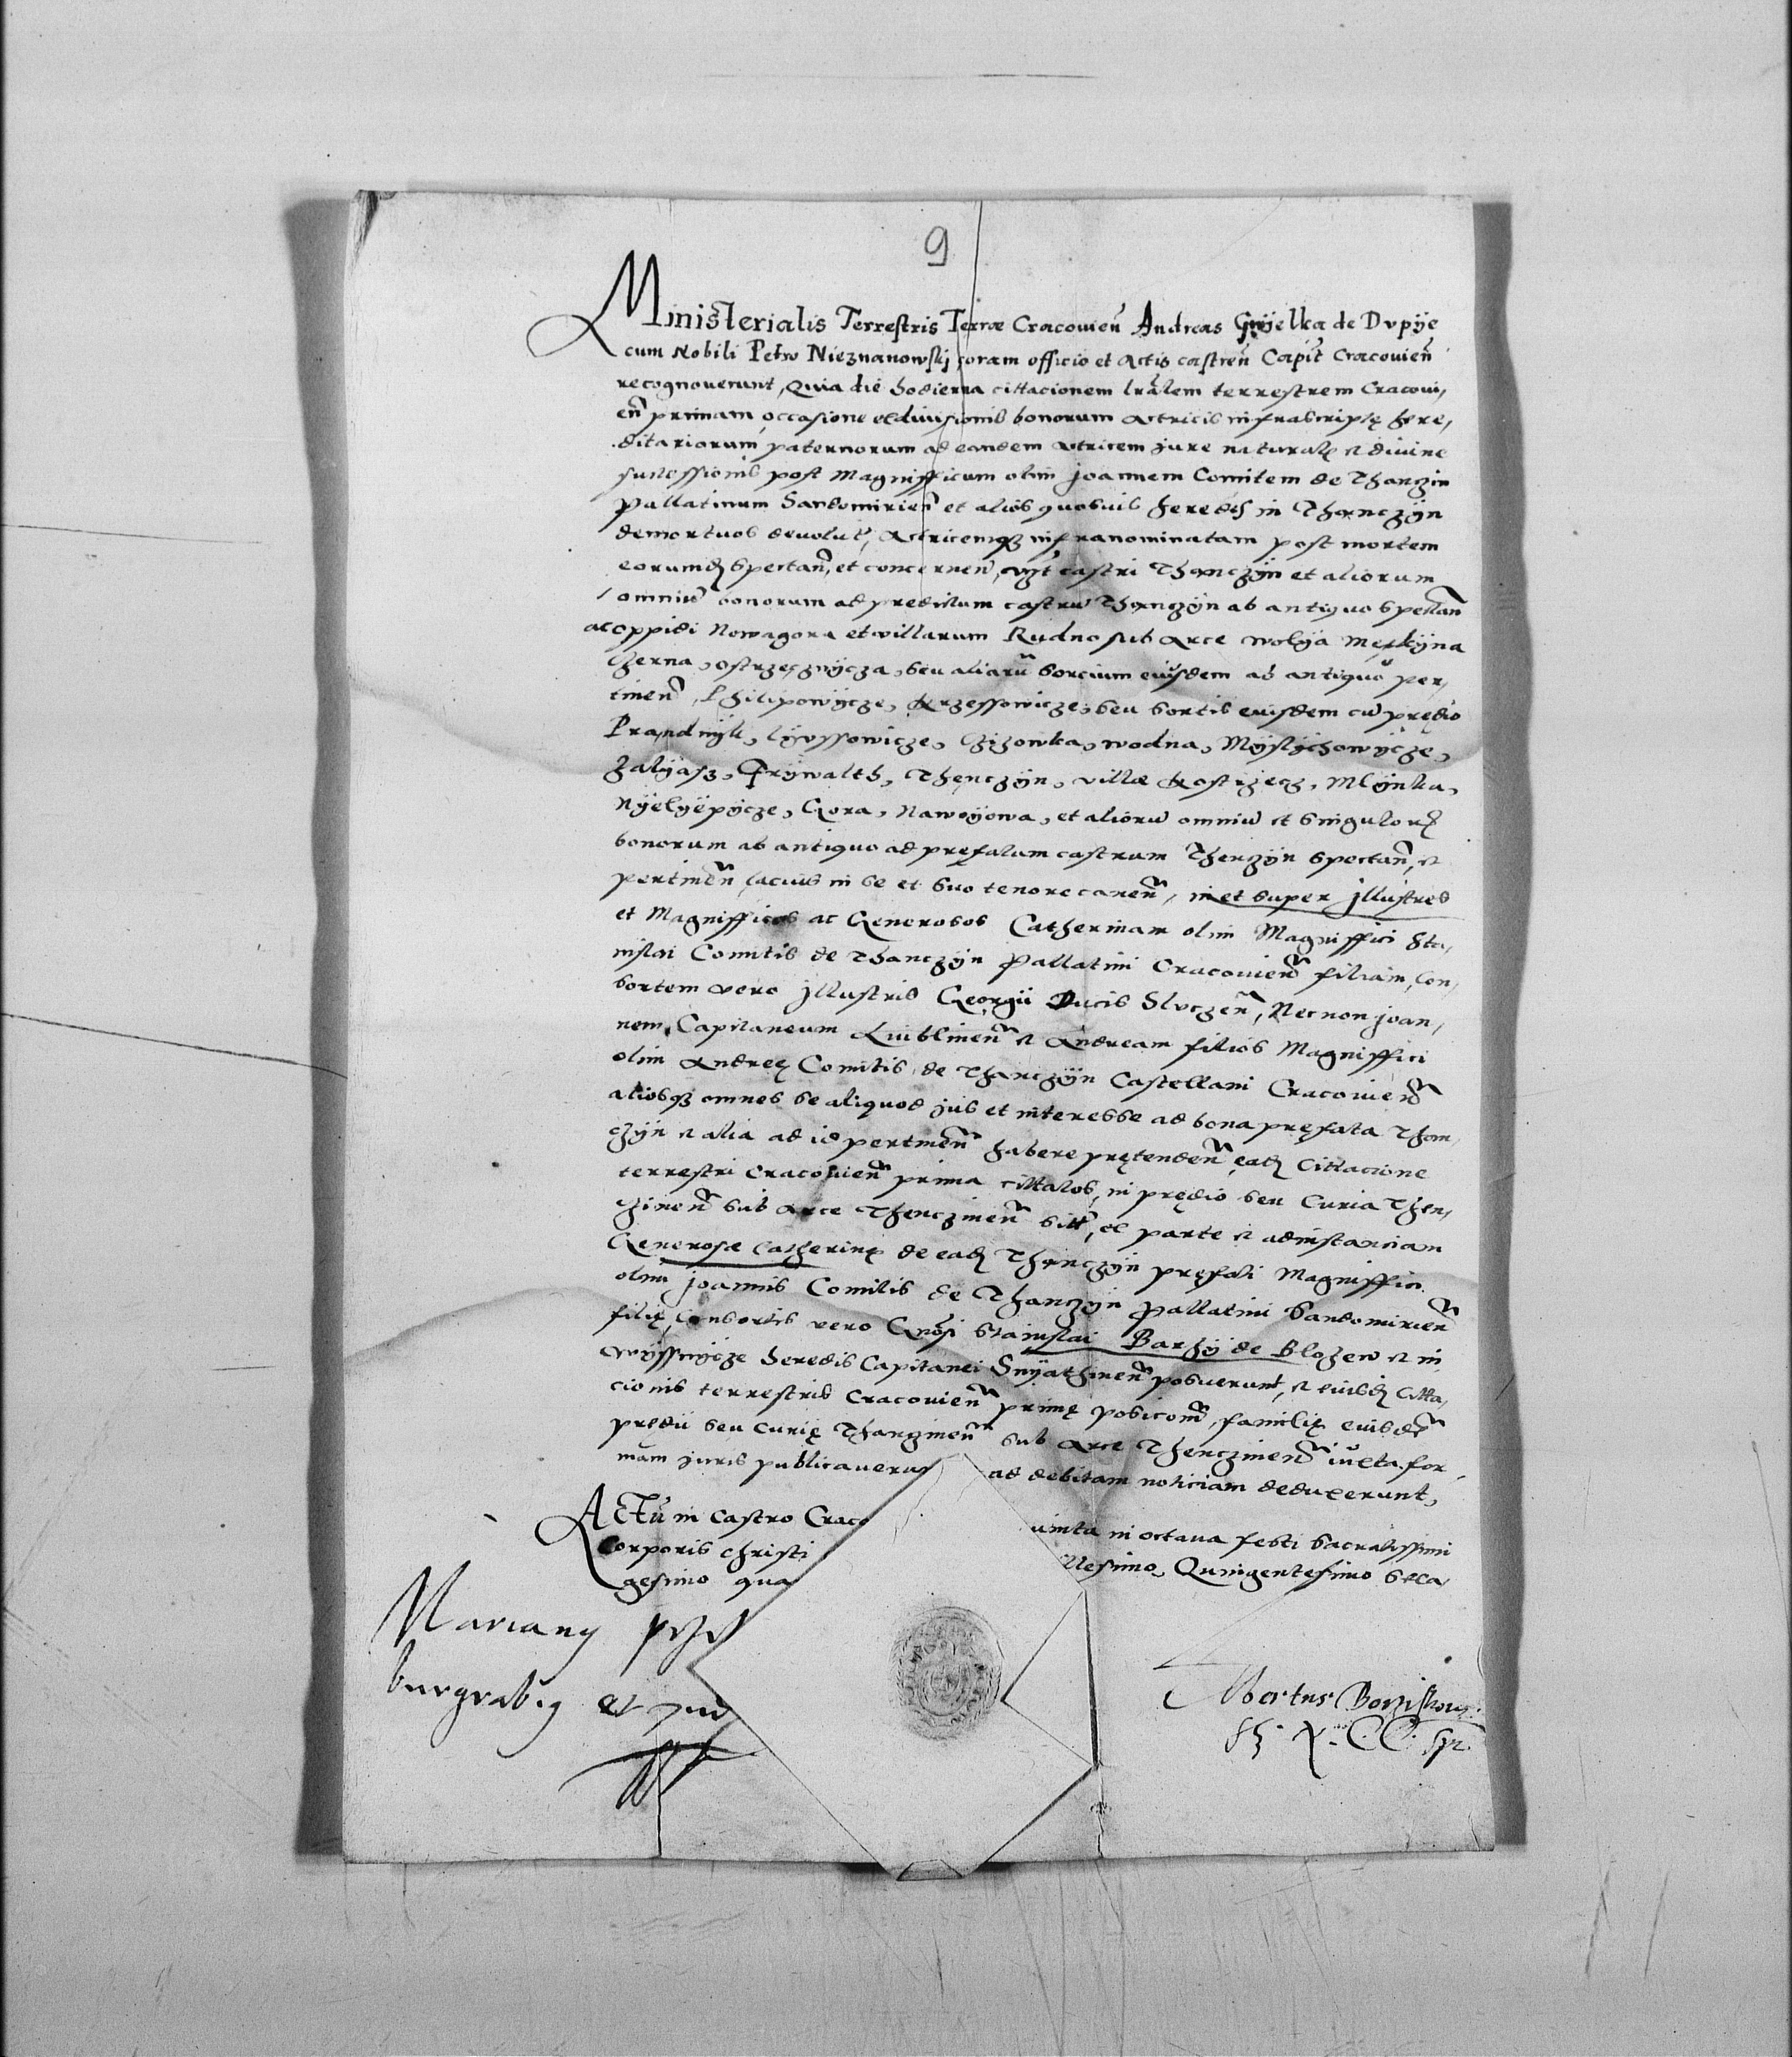 9
Ministerialis Terrestris Terræ Cracouieñ Andreas Gnÿelka de Dvpÿe
cum Nobili Petro Nieznanowskj coram officio et Actis castreñ Capit̃ Cracouieñ
recognouerunt, Quia die hodierna cittacionem lr̃alem terrestrem Cracoui,
eñ primam, occasione et diuisionis bonorum Actricis infrascriptę here,
ditariorum, paternorum ad eandem Actricem jure naturalj et diuine
successionis post Magnifficum olim Joannem Comitem de Thanczin
Pallatinum Sandomirieñ et alios quosuis heredes in Thanczÿn
demortuos deuolut̃, Actricemqꝫ infranominatam post mortem
eorumdꝫ spectañ, et concerneñ, vꝫt castri Thanczÿn et aliorum
omniũ bonorum ad predictum castrũ Thanczÿn ab antiquo spectañ
ac oppidi Nowagora et willarum Rudno sub Arce wolÿa Mękÿna
Czerna, Ostrzęznÿcza, seu aliarũ sorcium eiusdem ab antiquo per,
tineñ, Philipowÿcze, Krzessowicze, seu sortis eiusdem cũ prędio
Prandnÿk, Lÿvssowicze, Czizowka, wodna, Mÿslÿchowÿcze,
Zalÿasz, Frÿwalth, Thenczÿn, villæ Kostrzecz, Mlÿnka,
Nÿelÿepÿcze, Gora, Nawoÿowa, et aliorũ omniũ et singulorꝫ
bonorum ab antiquo ad pręfatum castrum Thenczÿn spectañ, et
pertineñ lacius in se et suo tenore caneñ, in et super Jllustres
et Magnifficos ac Generosos Catherinam olim Magniffici Sta,
nislai Comitis de Thanczÿn Pallatini Cracouieñ filiam, Con,
sortem vero Jllustris Georgii Ducis Slvczeñ, Necnon Joan,
nem, Capitaneum Lublineñ et Andream filios Magniffici
olim Andreę Comitis de Thanczÿn Castellani Cracouieñ
aliosqꝫ omnes se aliquod jus et interesse ad bona pręfata Than,
czÿn et alia ad id pertineñ habere prętendeñ, eadꝫ Cittacione
terrestri Cracouieñ prima cittatos, in prędio seu Curia Then,
czineñ sub Arce Thenczineñ sitt̃, ex parte et ad instanciam
Generosæ Catherinę de eadꝫ Thanczÿn pręfati Magniffici
olim Joannis Comitis de Thanczÿn Pallatini Sandomirieñ
filię, Consortis vero Gn̄osi Stanislai Barzÿ de Blozew et in
wÿssnÿcze heredis Capitanei Snÿathineñ posuerunt, et eiusdꝫ Citta,
cionis terrestris Cracouieñ primę posicom̃, familię eiusdẽ
prędii seu Curię Thanczineñ sub Arce Thenczineñ iuxta for,
mam juris publicauerun ad debitam noticiam deduxerunt,
Actũ in Castro Craco uinta in octaua festi Sacratissimi
Corporis Christi llesimo, Quingentesimo Sexa
gesimo qua
Marcianꝰ
burgrabiꝰ et
Albertus